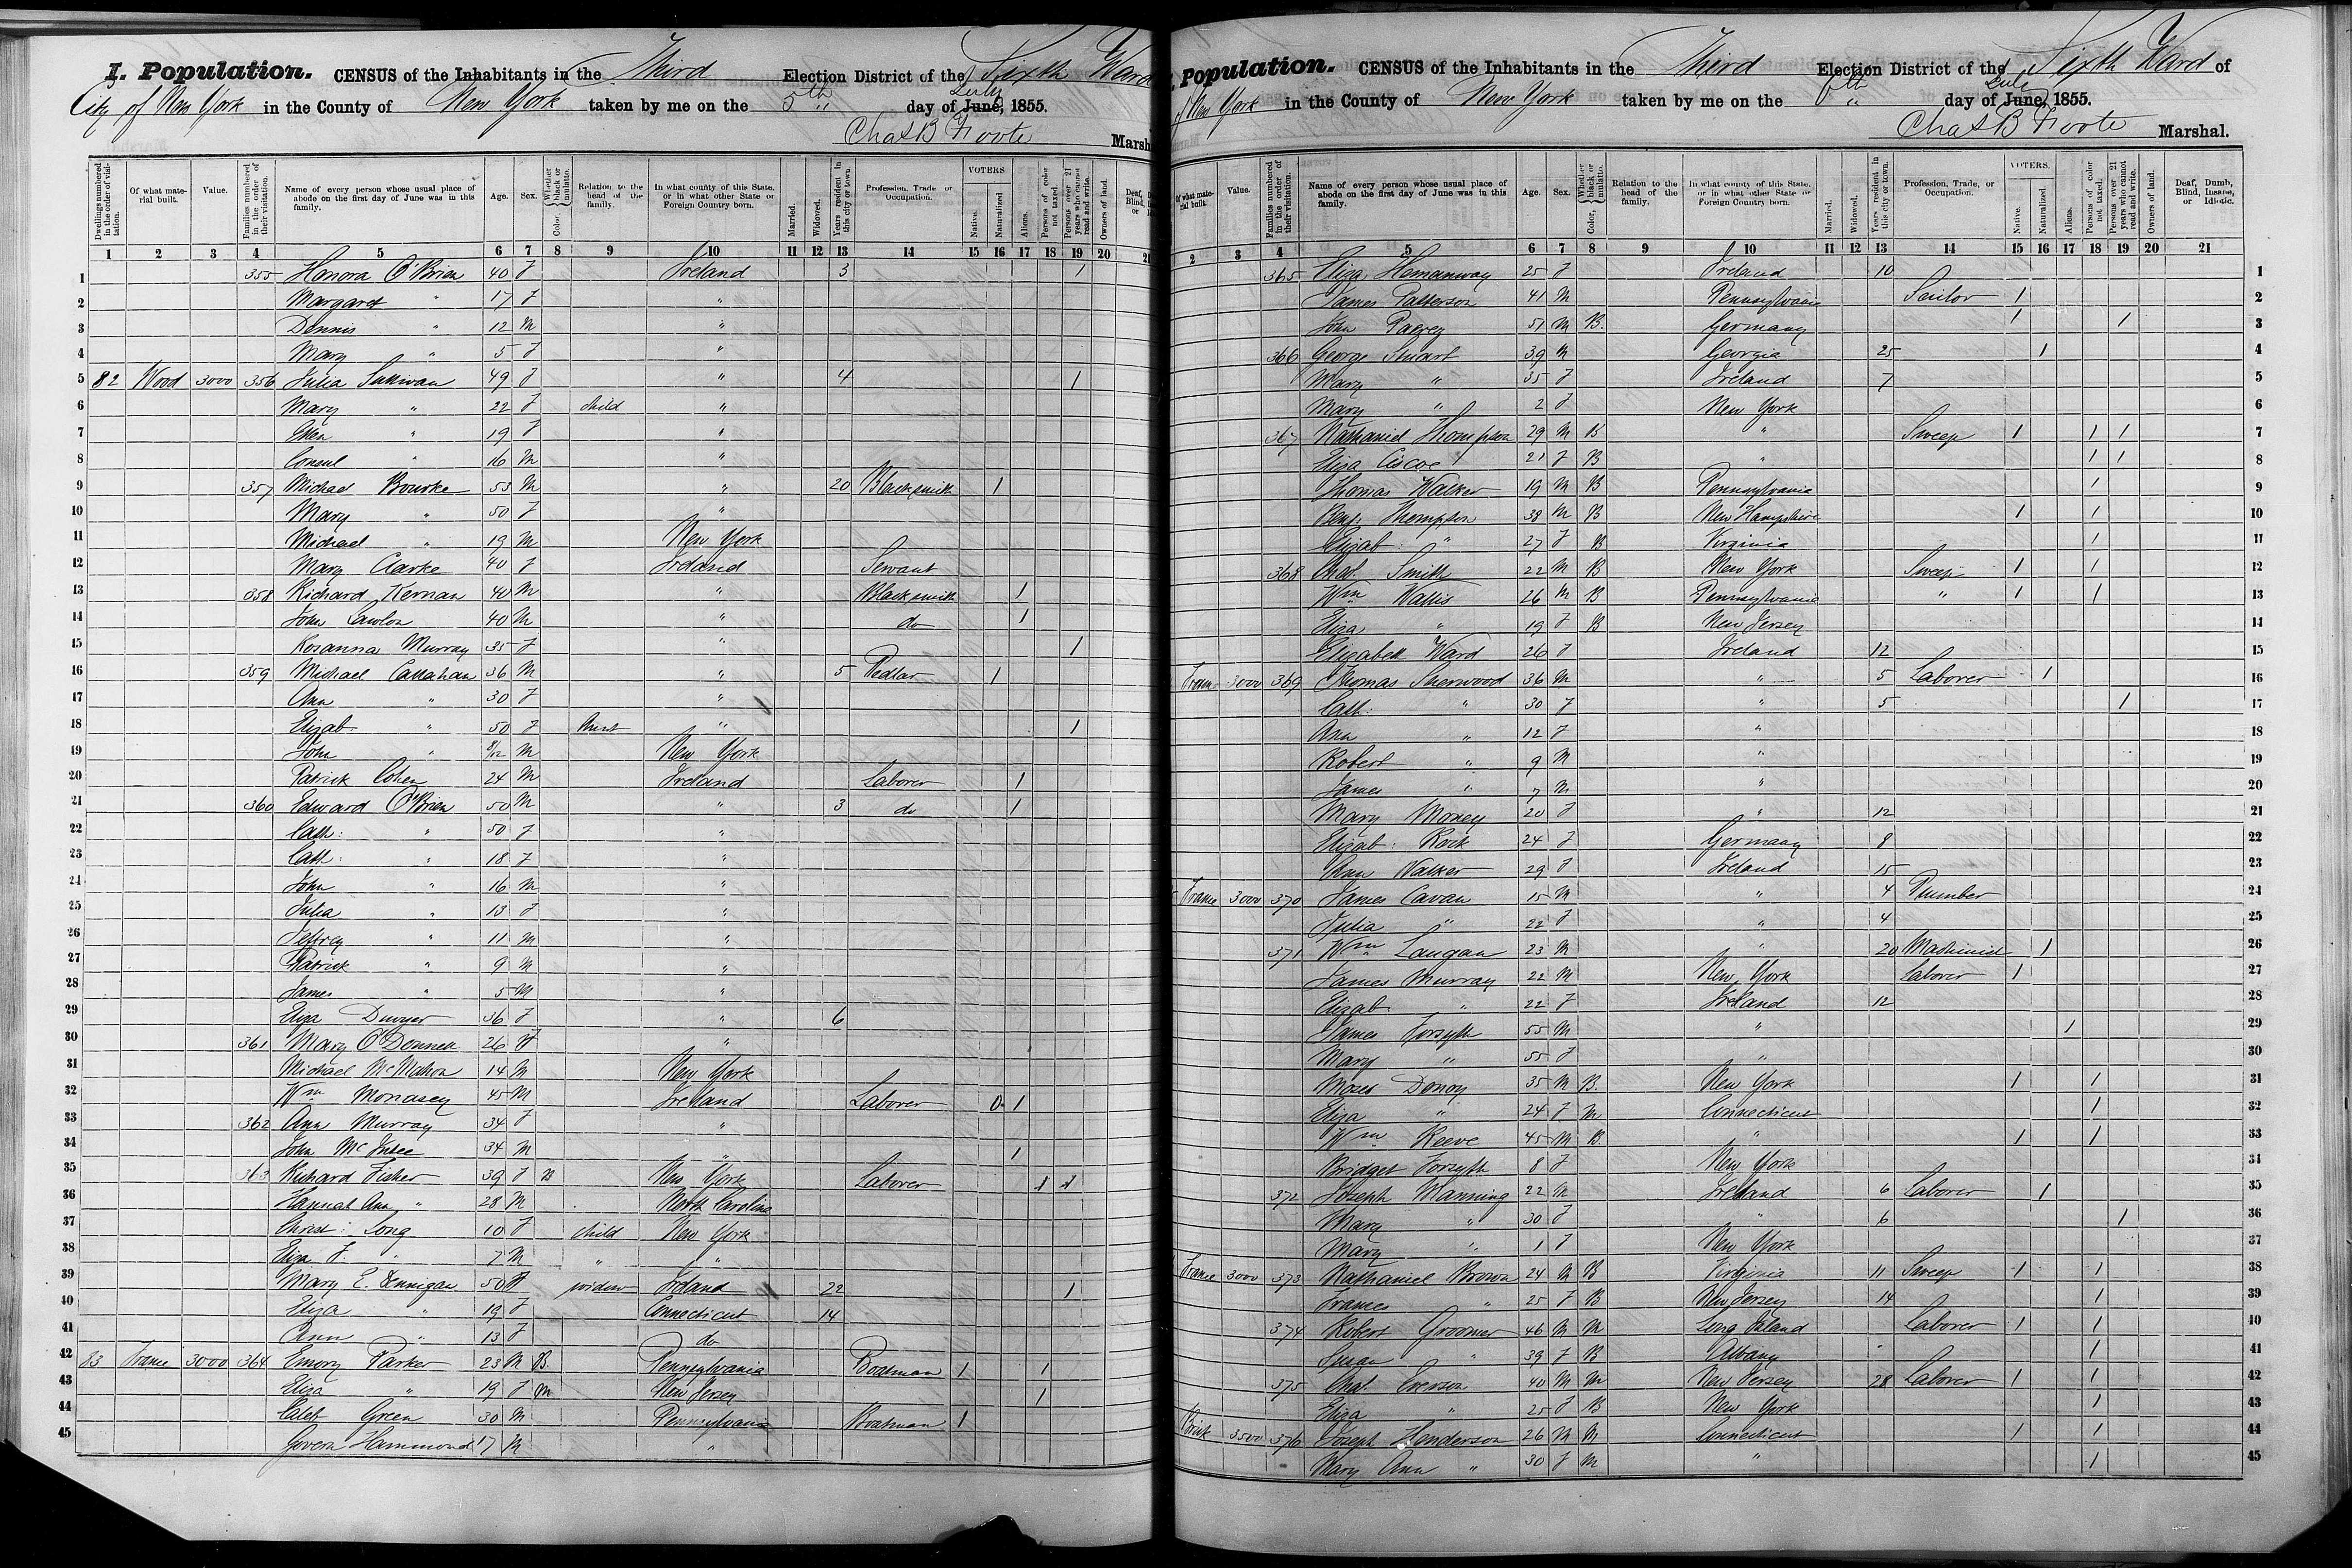 I. Population. CENSUS of the Inhabitants in the Third Election District of the Sixth Ward
City of New York in the County of New York taken by me on the 5th " day of June, July 1855.
Chas B Foote Marsh
Dwellings numbered in the order of visitation. Of what material built. Value. Families numbered in the order of their visitation. Name of every person whose usual place of abode on the first day of June was in this family. Age. Sex. Color, Whether black or mulatto. Relation to the head of the family. In what county of this State, or in what other State or Foreign Country born. Married. Widowed. Years resident in this city or town. Profession, Trade or Occupation. VOTERS. Native. Naturalized. Aliens. Persons of color not taxed. Persons over 21 years who cannot read and write. Owners of land. Deaf, Blind, or
1 2 3 4 5 6 7 8 9 10 11 12 13 14 15 16 17 18 19 20 21
1 355 Honora O'Brien 40 F Ireland 3 1
2 Margaret " 17 F "
3 Dennis " 12 M "
4 Mary " 5 F "
5 82 Wood 3000 356 Julia Sullivan 49 F " 4 1
6 Mary " 22 F child "
7 Ellen " 19 F "
8 " 16 M "
9 357 Michael Bourke 53 M " 20 Blacksmith 1
10 Mary " 50 F "
11 Michael " 19 M New York
12 Mary Clarke 40 F Ireland Servant
13 358 Richard Kernan 40 M " Blacksmith 1
14 John Lawlor 40 M " do 1
15 Rosanna Murray 35 F " 1
16 359 Michael Callahan 36 M " 5 Pedlar 1
17 Ann " 30 F "
18 Elizab " 50 F " 1
19 John " 9/12 M New York
20 Patrick Cohen 24 M Ireland Laborer 1
21 360 Edward O'Brien 50 M " 3 do 1
22 Cath: " 50 F "
23 Cath: " 18 F "
24 John " 16 M "
25 Julia " 13 F "
26 Jeffrey " 11 M "
27 Patrick " 9 M "
28 James " 5 M "
29 Eliza Dwyer 36 F " 6
30 361 Mary O'Donnell 26 F "
31 Michael McMahon 14 M New York
32 Wm Monasey 45 M Ireland Laborer 0 1
33 362 Ann Murray 34 F "
34 John 34 M " 1
35 363 Richard Fisher 39 F B New York Laborer 1 1
36 Hannah Ann " 28 M North Carolina
37 Christ: Long 10 F child New York
38 Eliza F. " 7 M " "
39 Mary E. Finnigan 50 F widow Ireland 22 1
40 Eliza " 19 F Connecticut 14
41 Ann " 13 F do
42 83 Frame 3000 364 Emory Parker 23 M B. Pennsylvania Boatman 1 1
43 Eliza " 19 F M New Jersey 1
44 Caleb Green 30 M Pennsylvania Boatman 1
45 Govern Hammond 17 M "
Population. CENSUS of the Inhabitants in the Third Election District of the Sixth Ward of
of New York in the County of New York taken by me on the 6th " day of June, July 1855.
Chas B Foote Marshal.
Of what material built. Value. Families numbered in the order of their visitation. Name of every person whose usual place of abode on the first day of June was in this family. Age. Sex. Color, Whether black or mulatto. Relation to the head of the family. In what county of this State, or in what other State or Foreign Country born. Married. Widowed. Years resident in this city or town. Profession, Trade, or Occupation. VOTERS. Native. Naturalized. Aliens. Persons of color not taxed. Persons over 21 years who cannot read and write. Owners of land. Deaf, Dumb, Blind, Insane, or Idiotic.
2 3 4 5 6 7 8 9 10 11 12 13 14 15 16 17 18 19 20 21
365 Eliza Hemanway 25 F Ireland 10 1
James Patterson 41 M Pennsylvania Sailor 1 2
John 51 M B. Germany 1 1 3
366 George Stuart 39 M Georgia 25 1 4
Mary " 35 F Ireland 7 5
Mary " 2 F New York 6
367 Nathaniel Thompson 29 M B " Sweep 1 1 1 7
Eliza Ciscoe 21 F B " 1 1 8
Thomas Walker 19 M B Pennsylvania 1 9
Benj. Thompson 38 M B New Hampshire 1 1 10
Elizab " 27 F B Virginia 1 11
368 Chas. Smith 22 M B New York Sweep 1 1 12
Wm Wallis 26 M B Pennsylvania " 1 1 13
Eliza " 19 F B New Jersey 14
Elizabeth Ward 26 F Ireland 12 15
Frame 3000 369 Thomas Sherwood 36 M " 5 Laborer 1 16
Cath: " 30 F " 5 1 17
Ann " 12 F " 18
Robert " 9 M " 19
James " 7 M " 20
Mary Money 20 F " 12 21
Elizab: Rock 24 F Germany 8 22
Ann Walker 29 F Ireland 15 23
Frame 3000 370 James Cavan 15 M " 4 Plumber 24
Julia " 22 F " 4 25
371 Wm Langan 23 M " 20 Machinist 1 26
James Murray 22 M New York Laborer 1 27
Elizab " 22 F Ireland 12 28
James Forsyth 55 M " 1 29
Mary " 55 F " 30
Moses Donoy 35 M B. New York 1 1 31
Eliza " 24 F M Connecticut 1 32
Wm Reeve 45 M B. " 1 1 33
Bridget Forsyth 8 F New York 34
372 Joseph Manning 22 M Ireland 6 Laborer 1 35
Mary " 30 F " 6 1 36
Mary " 1 F New York 37
Frame 3000 373 Nathaniel Brown 24 M B Virginia 11 Sweep 1 1 38
Frances " 25 F B New Jersey 14 1 39
374 Robert Groomer 46 M M Long Island Laborer 1 1 40
Susan " 39 F B Albany 1 41
375 Chas. Everson 40 M M New Jersey 28 Laborer 1 1 42
Eliza " 25 F B New York 1 43
Brick 3500 376 Joseph Henderson 26 M M Connecticut 1 1 44
Mary Ann " 30 F M " 1 45